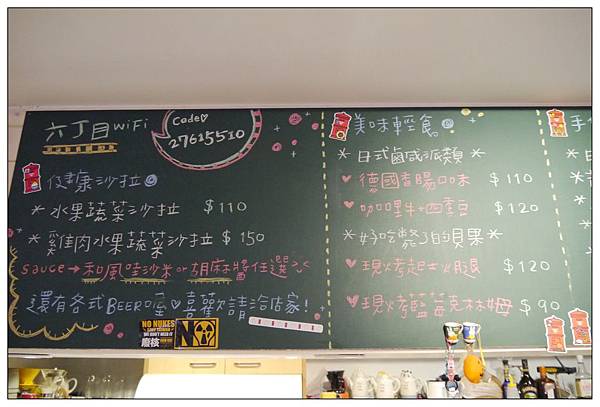 六丁目WiFi
Code
27615510
健康沙拉
*水果蔬菜沙拉 $110
*雞佳肉水果蔬菜沙拉 $150
sauce→和風哇沙米or胡麻醬任選
還有各式BEER喔♥喜歡請洽店家!
NO NUKES
廢核
美味輕食
*日式鹹派類
♥德國香腸口味 $110
♥咖哩牛+四季豆 $120
*好吃斃了的貝果
♥現烤起士火腿 $120
♥現烤藍莓克林姆 $90
手
*日